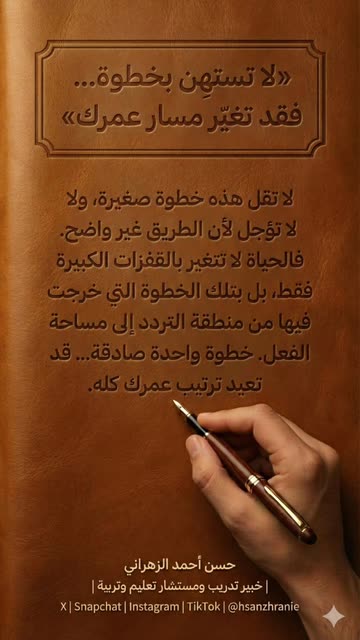 «لا تستهِن بخطوة...
فقد تغيّر مسار عمرك»
لا تقل هذه خطوة صغيرة، ولا
لا تؤجل لأن الطريق غير واضح.
فالحياة لا تتغير بالقفزات الكبيرة
فقط، بل بتلك الخطوة التي خرجت
فيها من منطقة التردد إلى مساحة
الفعل. خطوة واحدة صادقة... قد
تعيد ترتيب عمرك كله.
حسن أحمد الزهراني
| خبير تدريب ومستشار تعليم وتربية |
X | Snapchat | Instagram | TikTok | @hsanzhranie